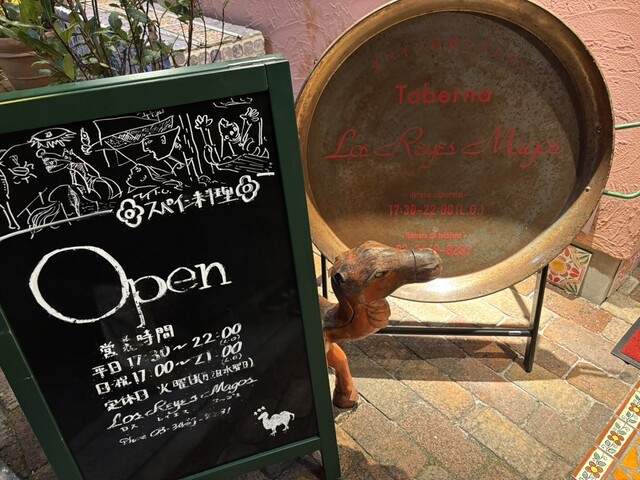 スペイン料理
Open
営業時間
平日 17:30~22:00
(L.O)
日・祝 17:00~21:00
(L.O)
定休日 火曜日
Los Reyes Magos
ロス レイエス マーゴス
Phone 03-
Taberna
Los Reyes Magos
17:30-22:00(L.O.)